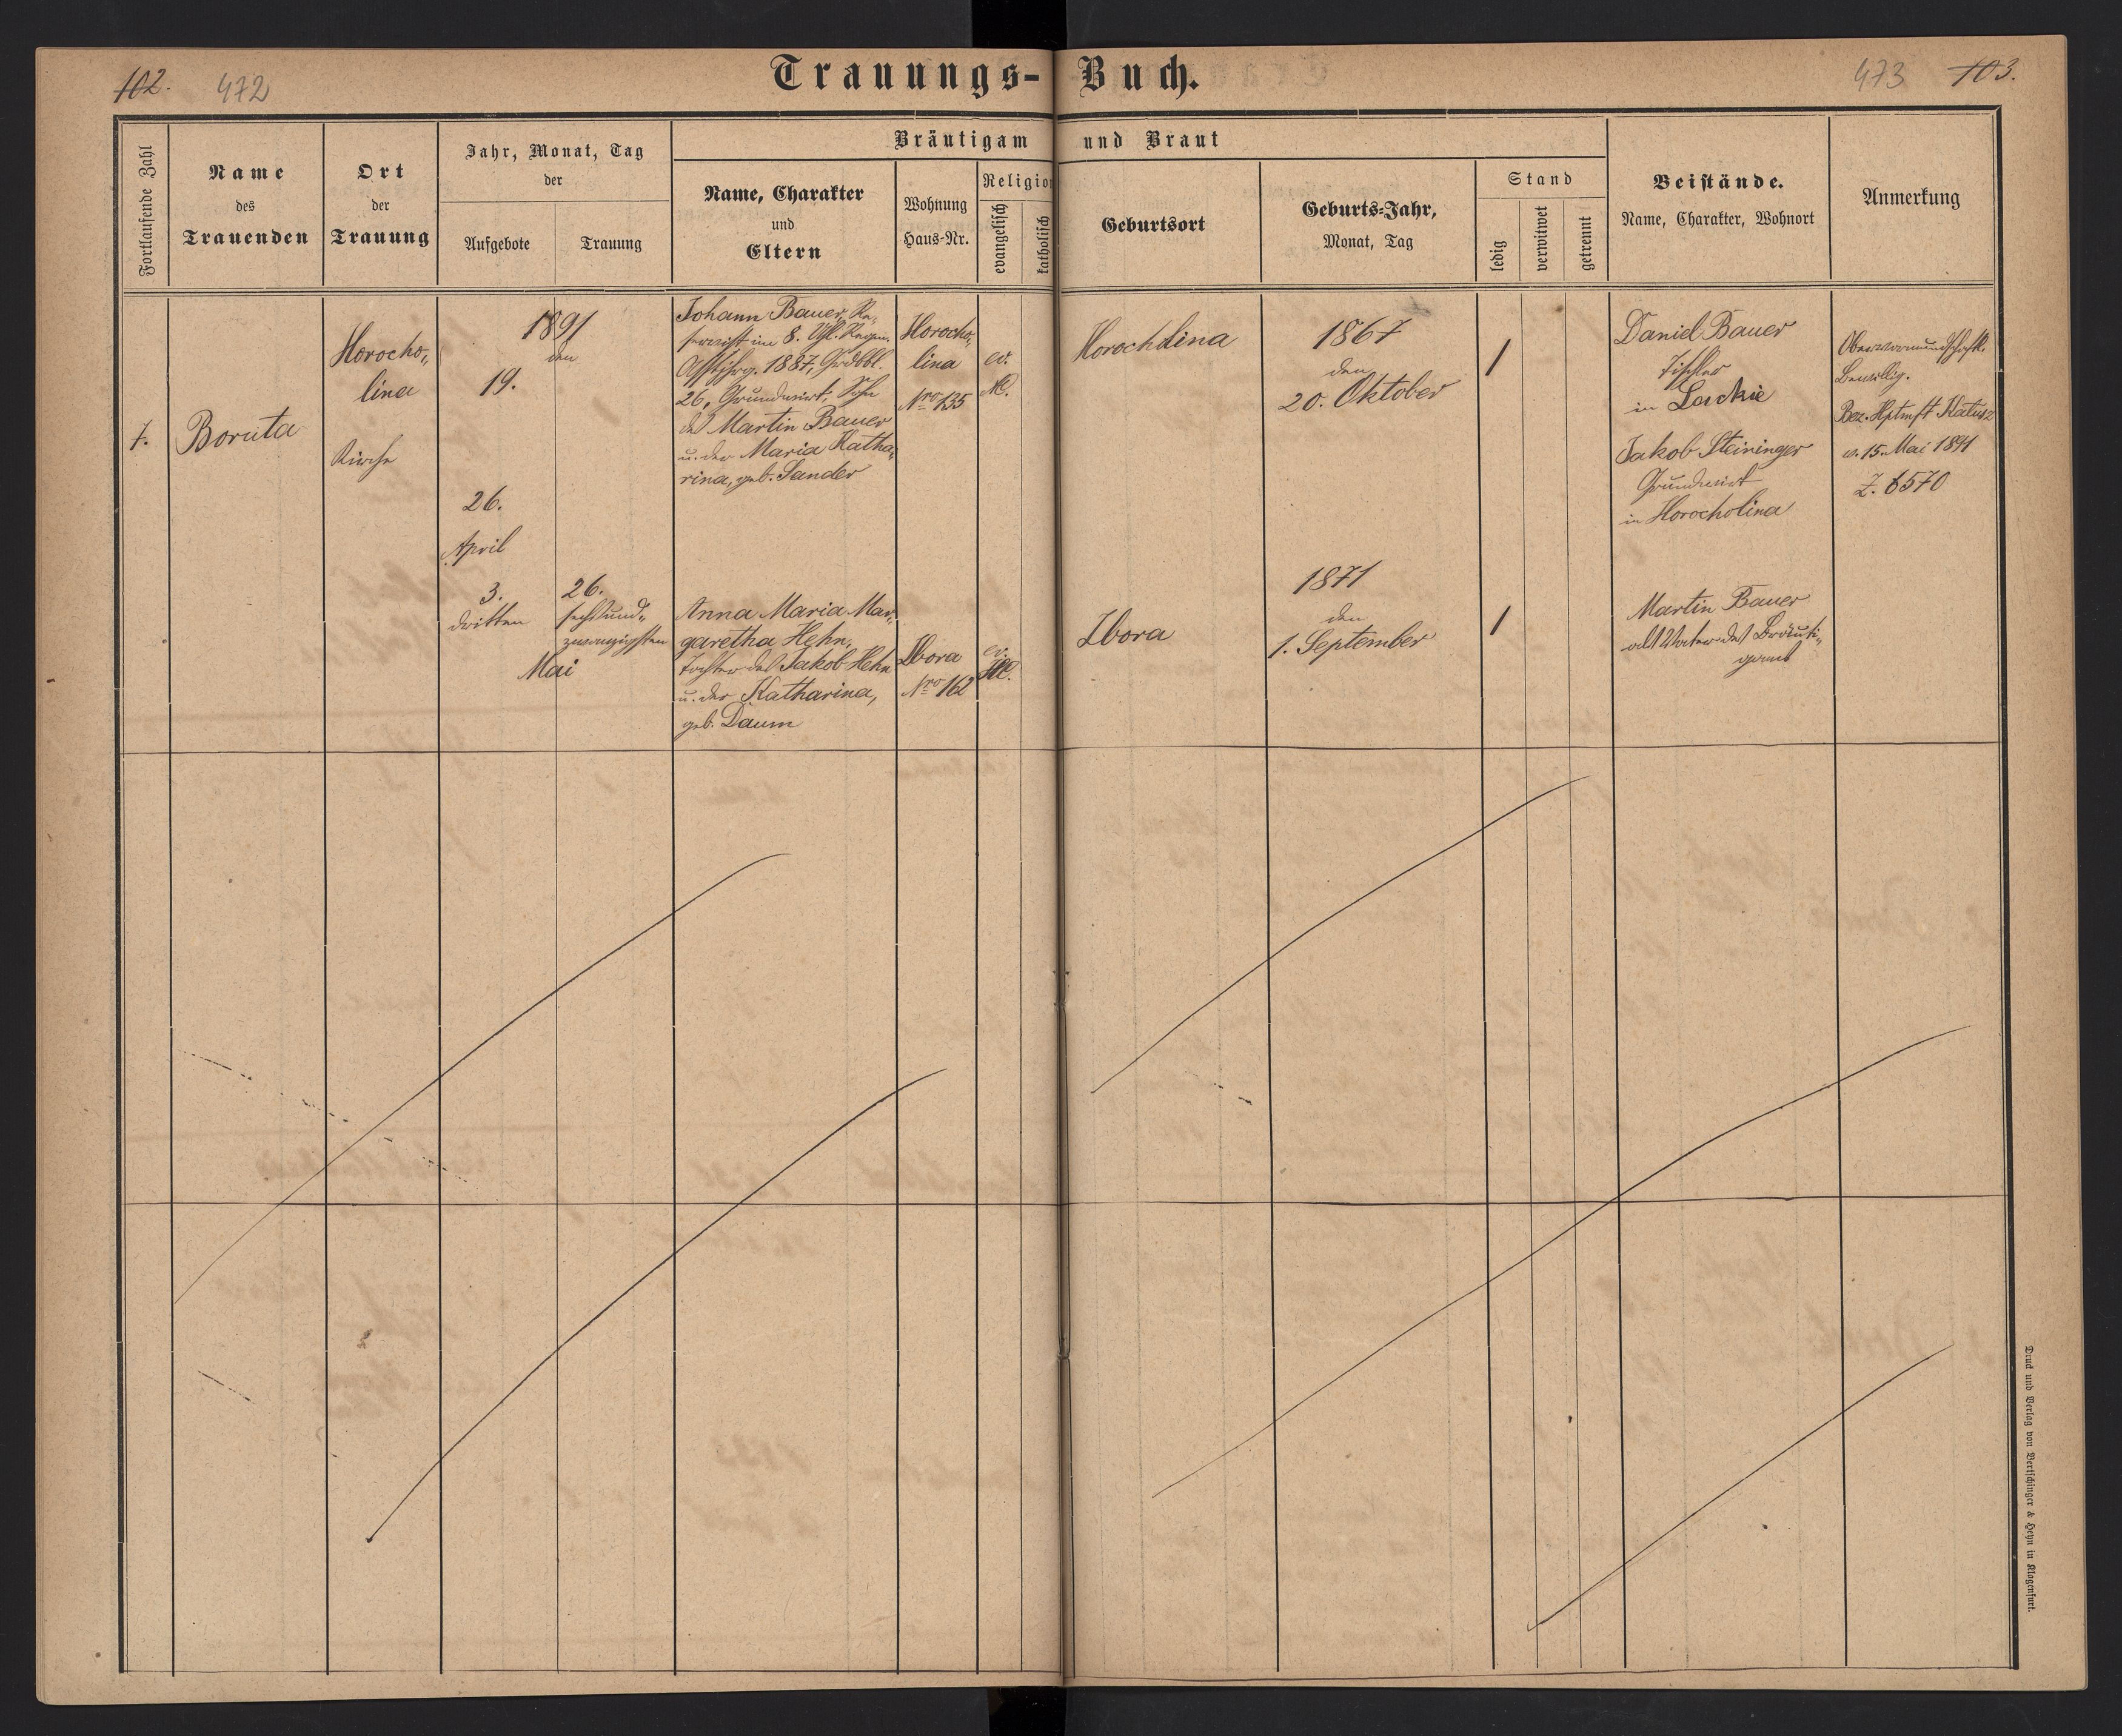 102. 472
Trauungs-Buch.
473 103.
Fortlaufende Zahl
Name
des
Trauenden
Ort
der
Trauung
Jahr, Monat, Tag
der
Aufgebote
Trauung
Bräutigam und Braut
Name, Charakter
und
Eltern
Wohnung
Haus-Nr.
Religion
evangelisch
katholisch
Geburtsort
Geburts-Jahr,
Monat, Tag
Stand
ledig
verwitwet
getrennt
Beistände.
Name, Charakter, Wohnort
Anmerkung
7.
Boruta
Horocho-
lina
Kirche
1891
den
19.
26.
April
3.
dritten
26.
sechsund-
zwanzigsten
Mai
Johann Bauer, Re-
servist im 8. Regm.
1887, Grdbbl.
26, Grundwirt, Sohn
des Martin Bauer
u. der Maria Katha-
rina, geb. Sander
Horocho-
lina
Nro 135
ev.
AC.
Horocholina
1867
den
20. Oktober
1
Daniel Bauer
Tischler
in Lackie
Jakob Steininger
Grundwirt
in Horocholina
Obervormundschaftl.
Bewillig.
Bez. Hptmft Kalusz
v. 15. Mai 1891
Z. 6570
Anna Maria Mar-
garetha Hehn,
Tochter des Jakob Hehn
u. der Katharina,
geb. Daum
Zbora
Nro 162
ev.
HC.
Zbora
1871
den
1. September
1
Martin Bauer
als Vater des Bräuti-
gams
Druck und Verlag von Bertschinger & Heyn in Klagenfurt.